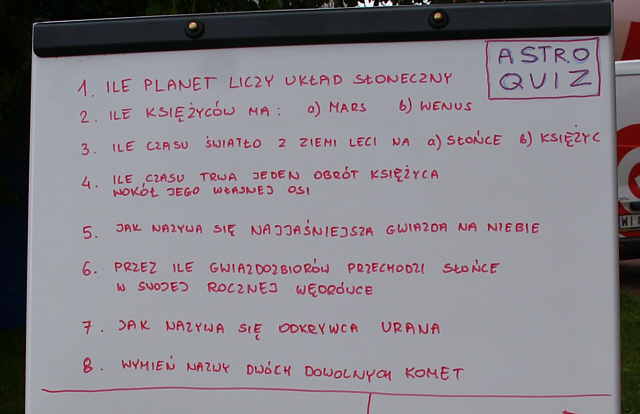 ASTRO
QUIZ
1. ILE PLANET LICZY UKŁAD SŁONECZNY
2. ILE KSIĘŻYCÓW MA: a) MARS b) WENUS
3. ILE CZASU ŚWIATŁO Z ZIEMI LECI NA a) SŁOŃCE b) KSIĘŻYC
4. ILE CZASU TRWA JEDEN OBRÓT KSIĘŻYCA
WOKÓŁ JEGO WŁASNEJ OSI
5. JAK NAZYWA SIĘ NAJJAŚNIEJSZA GWIAZDA NA NIEBIE
6. PRZEZ ILE GWIAZDOZBIORÓW PRZECHODZI SŁOŃCE
W SWOJEJ ROCZNEJ WĘDRÓWCE
7. JAK NAZYWA SIĘ ODKRYWCA URANA
8. WYMIEŃ NAZWY DWÓCH DOWOLNYCH KOMET